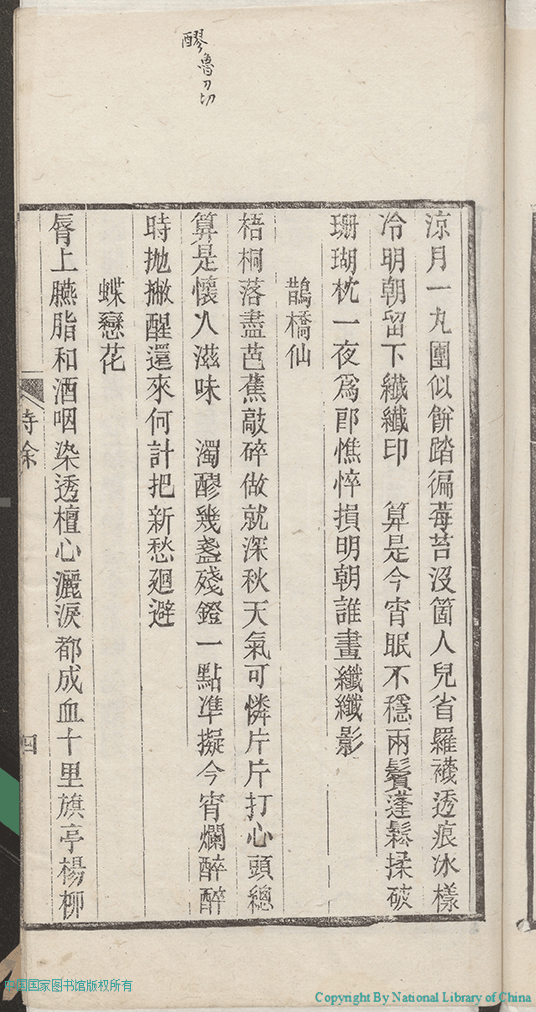 醪魯刀切
涼月一丸團似餅踏徧莓苔沒箇人兒省羅襪透痕冰樣
冷明朝留下纖纖印　算是今宵眠不穩兩鬢蓬鬆揉破
珊瑚枕一夜爲郎憔悴損明朝誰畫纖纖影
鵲橋仙
梧桐落盡芭蕉敲碎做就深秋天氣可憐片片打心頭總
算是懷人滋味　濁醪幾盞殘鐙一點準擬今宵爛醉醉
時抛撇醒還來何計把新愁廻避
蝶戀花
脣上臙脂和酒咽染透檀心灑淚都成血十里旗亭楊柳
詩余
四
中国国家图书馆版权所有
Copyright By National Library of China